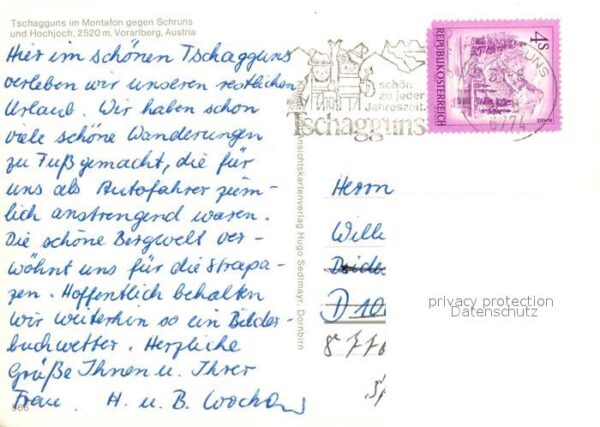 Tschagguns im Montafon gegen Schruns
und Hochjoch, 2520 m, Vorarlberg, Austria
Hier im schönen Tschagguns
verleben wir unseren restlichen
Urlaub. Wir haben schon
viele schöne Wanderungen
zu Fuß gemacht, die für
uns als Autofahrer ziem-
lich anstrengend waren.
Die schöne Bergwelt ver-
wöhnt uns für die Strapa-
zen. Hoffentlich behalten
wir weiterhin so ein Bilder-
buchwetter. Herzliche
Grüße Ihnen u. Ihrer
Frau. H. u. B.
566
Ansichtskartenverlag Hugo Sedlmayr, Dornbirn
schön
zu jeder
Jahreszeit.
Tschagguns
4S
REPUBLIK ÖSTERREICH
6774
Herrn
Wille
D 10
privacy protection
Datenschutz